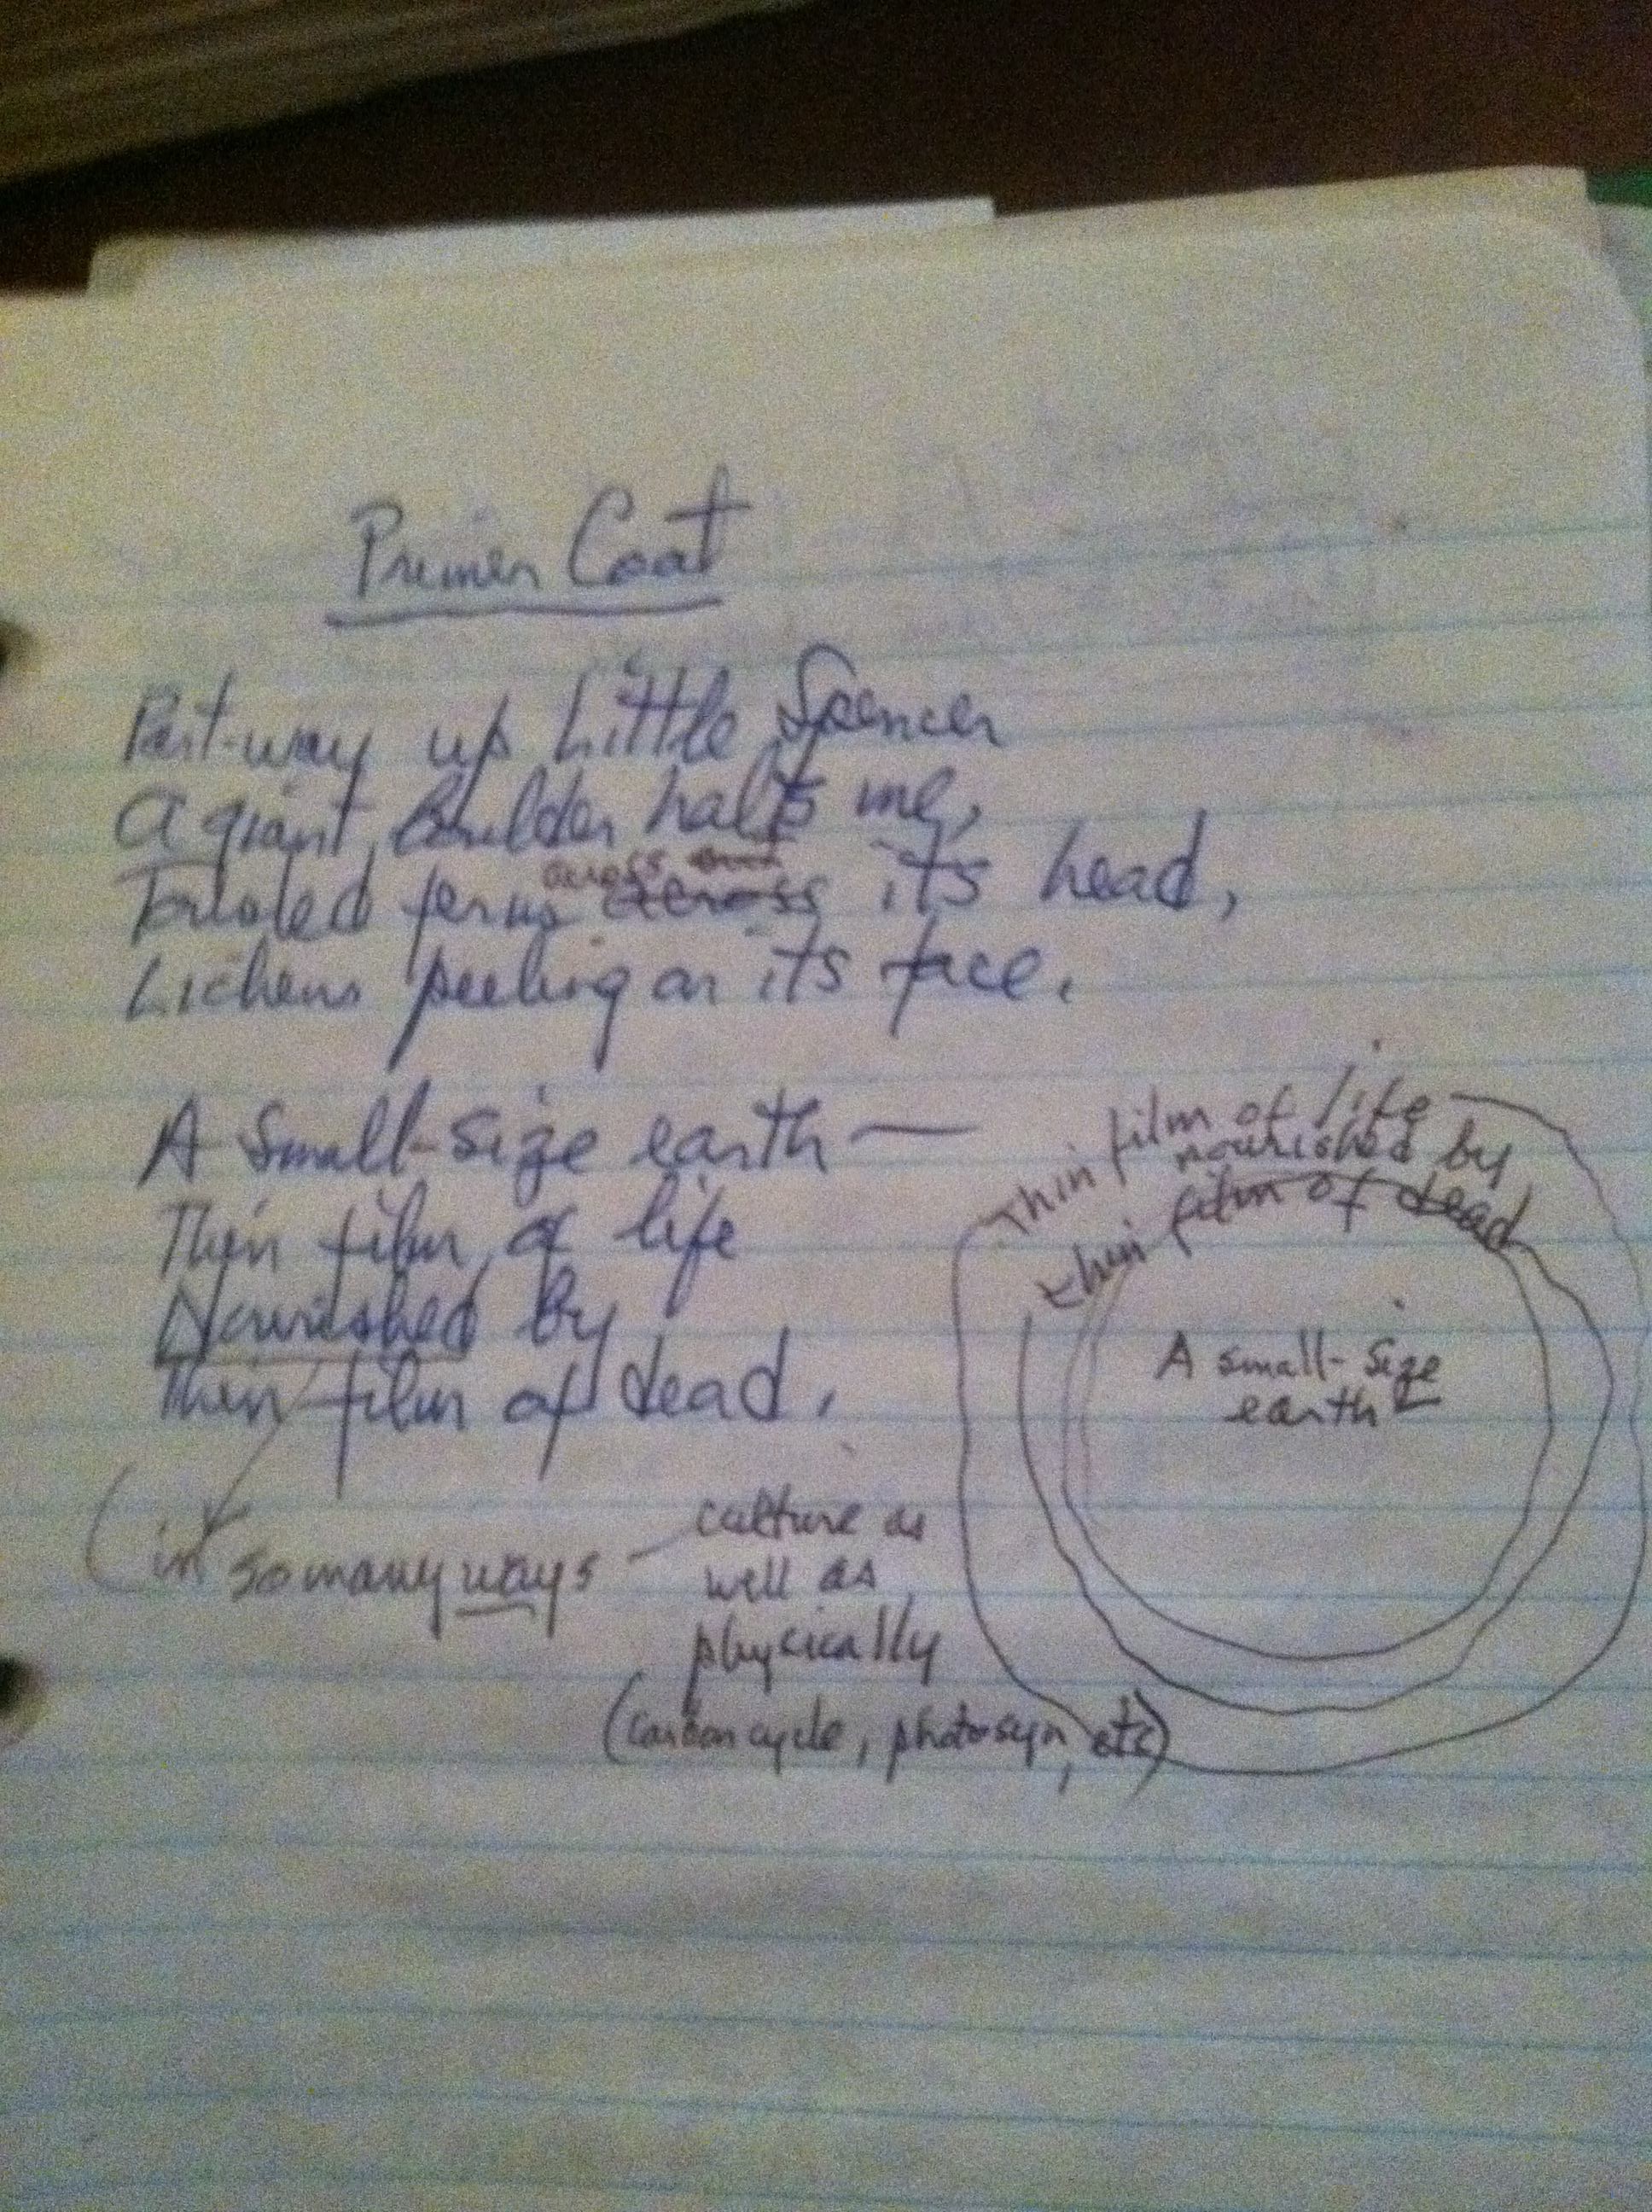 Primer Coat
Part-way up Little Spencer
A giant boulder halts me,
Tousled ferns across its head,
Lichens peeling on its face.
A small-size earth —
Thin film of life
Nourished by
Thin film of dead.
(in so many ways — culture as
well as
physically
(carbon cycle, photosyn, etc)
Thin film of life
nourished by
thin film of dead
A small-size
earth